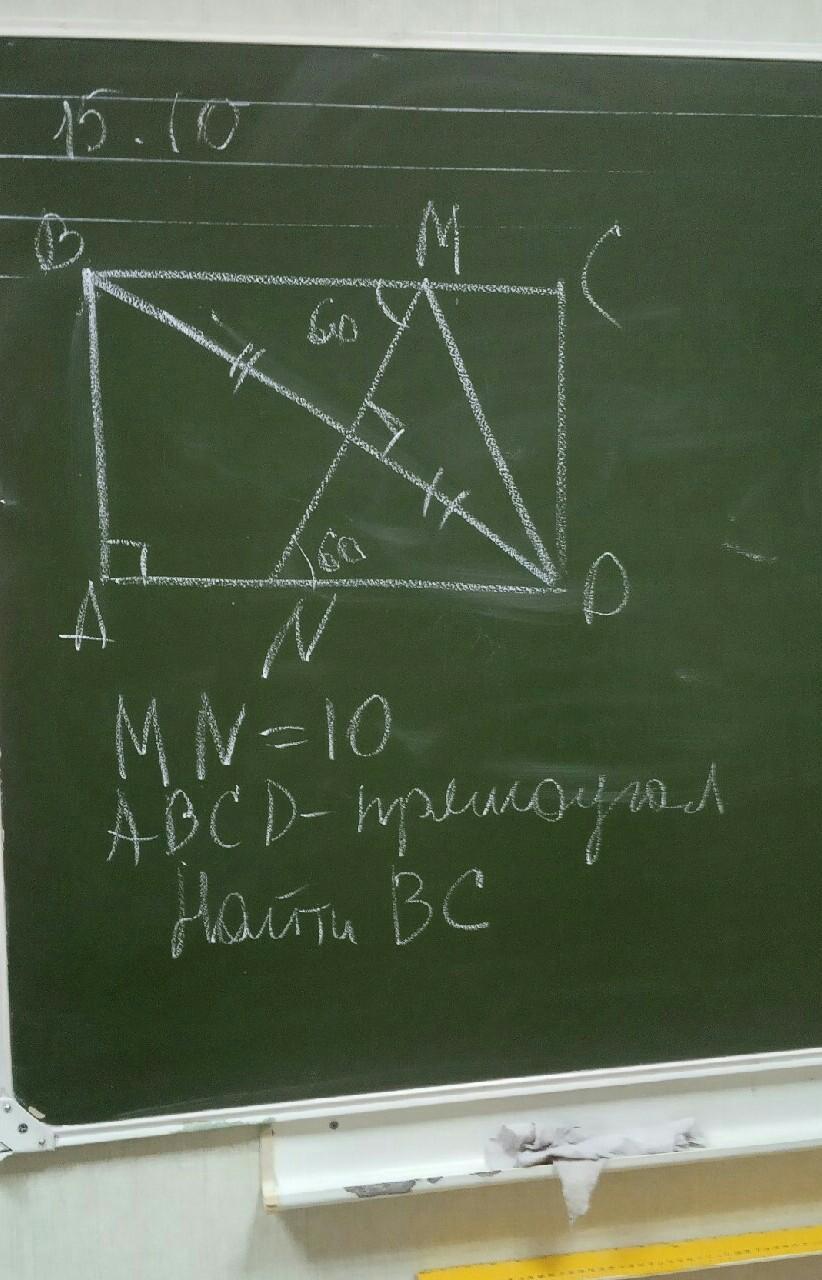 15.10
B M C
60
60
A N D
MN=10
ABCD-прямоугол
Найти BC